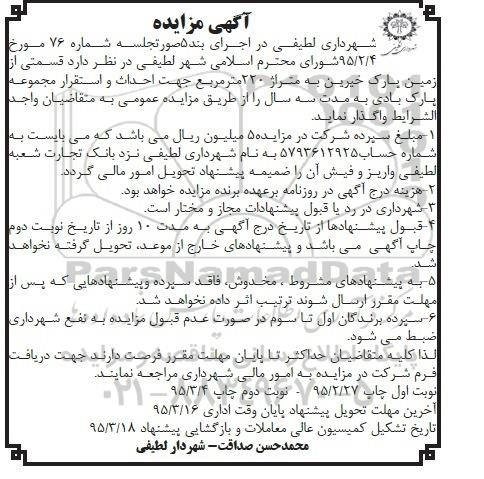 آگهی مزایده
شهرداری لطیفی در اجرای بند۵صورتجلسه شماره ۷۶ مورخ
۹۵/۲/۴شورای محترم اسلامی شهر لطیفی در نظر دارد قسمتی از
زمین پارک خیرین به متراژ ۲۲۰مترمربع جهت احداث و استقرار مجموعه
پارک بادی به مدت سه سال را از طریق مزایده عمومی به متقاضیان واجد
الشرایط واگذار نماید.
۱-مبلغ سپرده شرکت در مزایده۵ میلیون ریال می باشد که می بایست به
شماره حساب۵۷۹۳۶۱۲۹۲۵ به نام شهرداری لطیفی نزد بانک تجارت شعبه
لطیفی واریز و فیش آن را ضمیمه پیشنهاد تحویل امور مالی گردد.
۲-هزینه درج آگهی در روزنامه برعهده برنده مزایده خواهد بود.
۳-شهرداری در رد یا قبول پیشنهادات مجاز و مختار است.
۴-قبول پیشنهادها از تاریخ درج آگهی به مدت ۱۰ روز از تاریخ نوبت دوم
چاپ آگهی می باشد و پیشنهادهای خارج از موعد، تحویل گرفته نخواهد
شد.
۵-به پیشنهادهای مشروط ، مخدوش، فاقد سپرده وپیشنهادهایی که پس از
مهلت مقرر ارسال شوند ترتیب اثر داده نخواهد شد.
۶-سپرده برندگان اول تا سوم در صورت عدم قبول مزایده به نفع شهرداری
ضبط می شود.
لذا کلیه متقاضیان حداکثر تا پایان مهلت مقرر فرصت دارند جهت دریافت
فرم شرکت در مزایده به امور مالی شهرداری مراجعه نمایند.
نوبت اول چاپ ۹۵/۲/۲۷ - نوبت دوم چاپ ۹۵/۳/۴
آخرین مهلت تحویل پیشنهاد پایان وقت اداری ۹۵/۳/۱۶
تاریخ تشکیل کمیسیون عالی معاملات و بازگشایی پیشنهاد ۹۵/۳/۱۸
محمدحسن صداقت- شهردار لطیفی
ParsNamadData